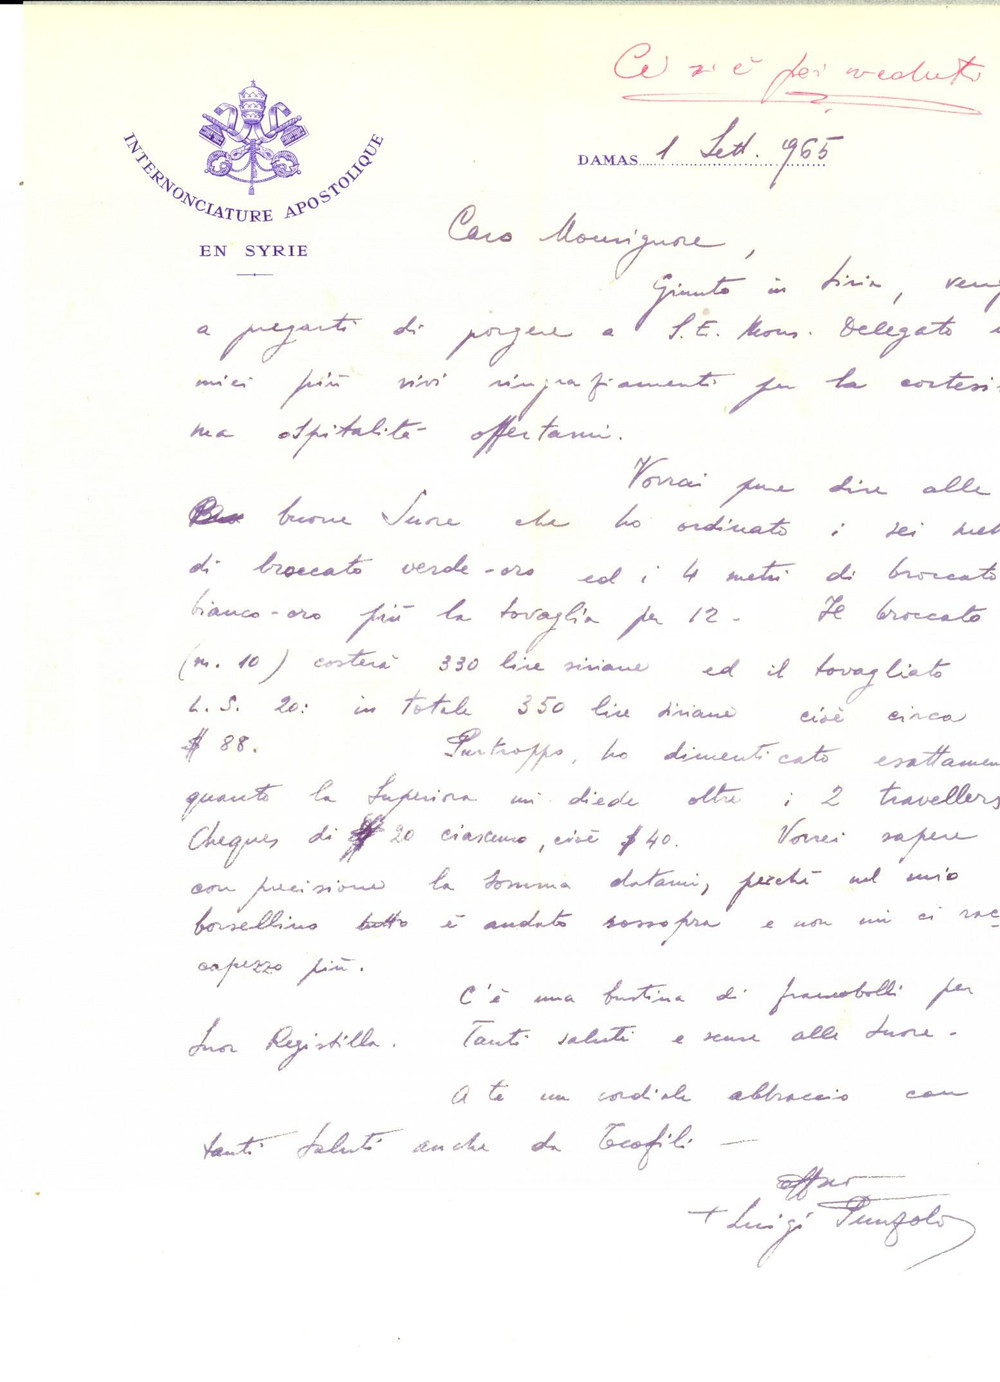 Ci si è poi veduti
INTERNONCIATURE APOSTOLIQUE
EN SYRIE
DAMAS 1 Sett. 965
Caro Monsignore,
Giunto in Siria, veng
a pregarti di porgere a S. E. Mons. Delegato
miei più vivi ringraziamenti per la cortesis
ma ospitalità offertami.
Vorrei pure dire alle
buone Suore che ho ordinato i sei met
di broccato verde-oro ed i 4 metri di broccato
bianco-oro più la tovaglia per 12 - Il broccato
(m. 10) costerà 330 lire siriane ed il tovagliato
L. S. 20: in totale 350 lire siriane cioè circa
$ 88. Purtroppo, ho dimenticato esattamen
quanto la Superiora mi diede oltre i 2 travellers
Cheques di $ 20 ciascuno, cioè $ 40. Vorrei sapere
con precisione la somma datami, perchè nel mio
borsellino tutto è andato sossopra e non mi ci rac-
capezzo più.
C'è una bustina di francobolli per
Suor Registilla. Tanti saluti e scuse alle Suore -
A te un cordiale abbraccio con
tanti saluti anche da Teofili -
aff.mo
+ Luigi Punzolo